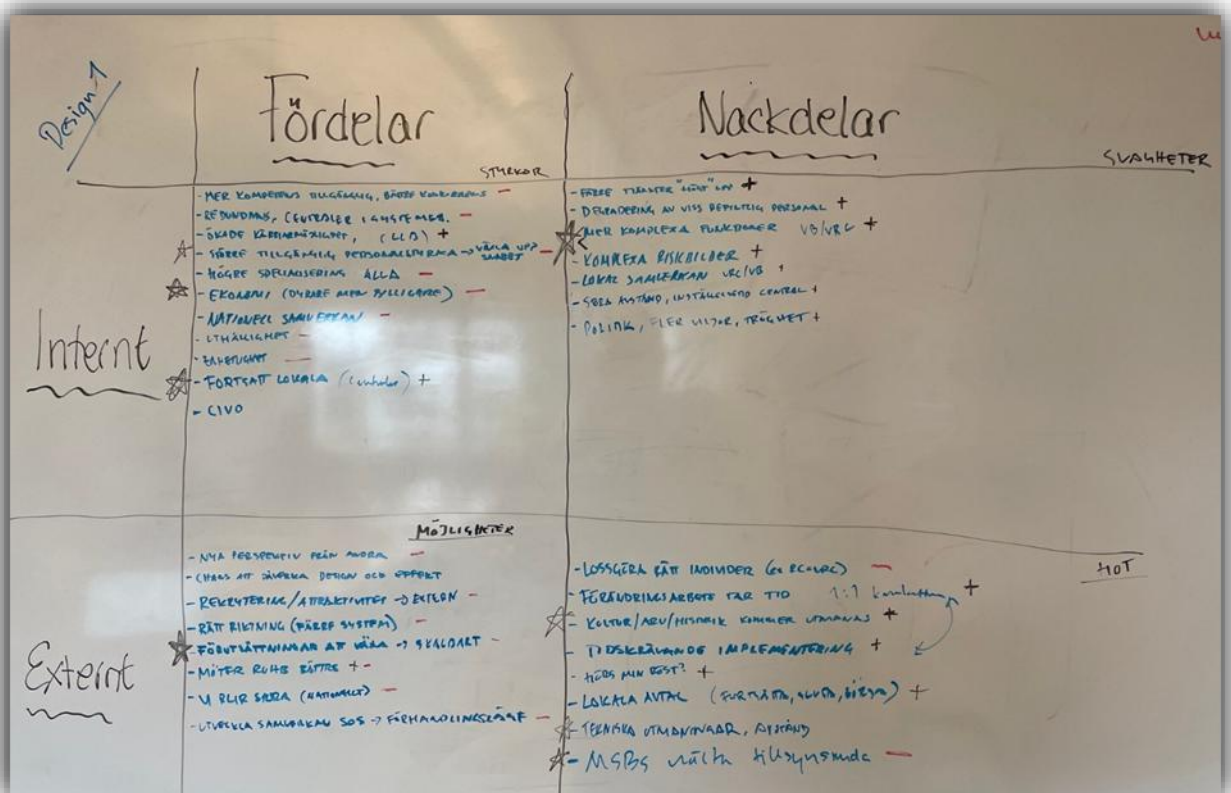 Design 1
Fördelar
Nackdelar
STYRKOR
SVAGHETER
Internt
- MER KOMPETENS TILLGÄNGLIG, BÄTTRE KONKURRENS -
- REDUNDANS, CENTRALER I SYSTEMET. -
- ÖKADE KARRIÄRMÖJLIGHET, (LLB) +
- STÖRRE TILLGÄNGLIG PERSONALSTYRKA → VÄXLA UPP SNABBT -
- HÖGRE SPECIALISERING ALLA -
- EKONOMI (DYRARE MEN BILLIGARE) -
- NATIONELL SAMVERKAN -
- UTHÅLLIGHET -
- ENHETLIGHET -
- FORTSATT LOKALA (Centraler) +
- CIVO
- FÄRRE TJÄNSTER "HÖGT" UPP +
- DEGRADERING AV VISS BEFINTLIG PERSONAL +
- MER KOMPLEXA FUNKTIONER VB/VRC +
- KOMPLEXA RISKBILDER +
- LOKAL SAMVERKAN VRC/VB +
- STORA AVSTÅND, CENTRAL +
- POLITIK, FLER VILJOR, TRÖGHET +
Externt
MÖJLIGHETER
HOT
- NYA PERSPEKTIV FRÅN ANDRA -
- CHANS ATT PÅVERKA DESIGN OCH EFFEKT
- REKRYTERING/ATTRAKTIVITET → EXTERN -
- RÄTT RIKTNING (FÄRRE SYSTEM) -
- FÖRUTSÄTTNINGAR ATT VÄXA → SKALBART -
- MÖTER RUHB BÄTTRE + -
- VI BLIR STÖRA (NATIONELLT) -
- UTVECKLA SAMVERKAN SOS → FÖRHANDLINGSLÄGE -
- LOSSGÖRA RÄTT INDIVIDER (ex RC→VRC) -
- FÖRÄNDRINGSARBETE TAR TID 1:1 +
- KULTUR/ARV/HISTORIK KOMMER UTMANAS +
- TIDSKRÄVANDE IMPLEMENTERING +
- HÖRS MIN RÖST? +
- LOKALA AVTAL (FORTSÄTTA, SLUTA, BÖRJA) +
- TEKNISKA UTMANINGAR, AVSTÅND
- MSBs nästa tillsynsrunda -